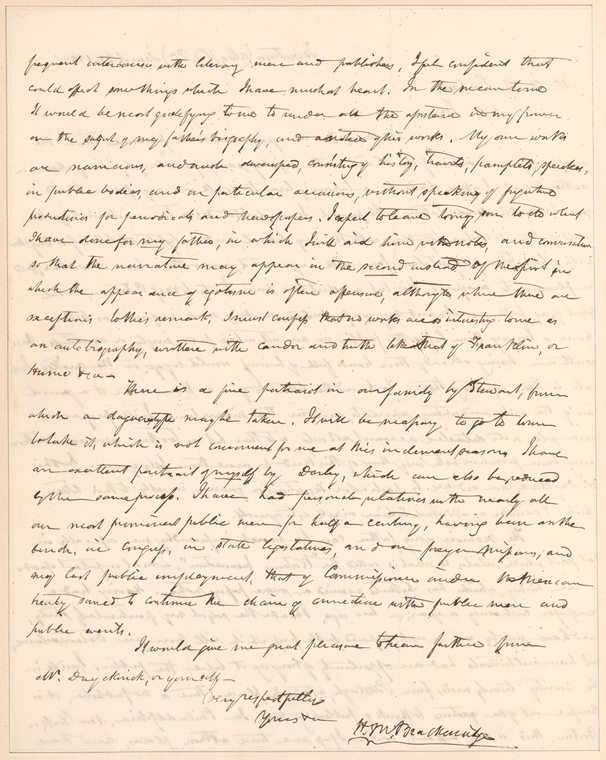 frequent intercourse with literary men and publishers, I feel confident that
could effect somethings which I have much at heart. In the mean time
It would be most gratifying to me to render all the assistance in my power
on the subject of my father's biography, and of his works. My own works
are numerous, and much diversified, consisting of history, travels, pamphlets, speeches,
in public bodies, and on particular occasions, without speaking of fugitive
productions for periodicals and newspapers. I expect to leave to my son to do what
I have done for my father, in which I will aid him with notes, and conversation
so that the narrative may appear in the second instead of the first in
which the appearance of egotism is often offensive, altho' there are
exceptions to this remark. I must confess that no works are so interesting to me as
an autobiography, written with candor and truth like that of Franklin, or
Hume &c a—
There is a fine portrait in our family by Stewart, from
which a daguerotype may be taken. It will be necessary to go to town
to take it, which is not convenient for me at this inclement season. I have
an excellent portrait of myself by Darley, which can also be reduced
by the same process. I have had personal relations with nearly all
our most prominent public men for half a century, having been on the
bench, in Congress, in state legislatures, and on foreign missions; and
my last public employment, that of Commissioner under the Mexican
treaty served to continue the chain of connection with public men and
public events.
It would give me great pleasure to hear further from
Mr. Duyckinck, or yourself—
Very respectfully
Yours &c
H. M. Brackenridge